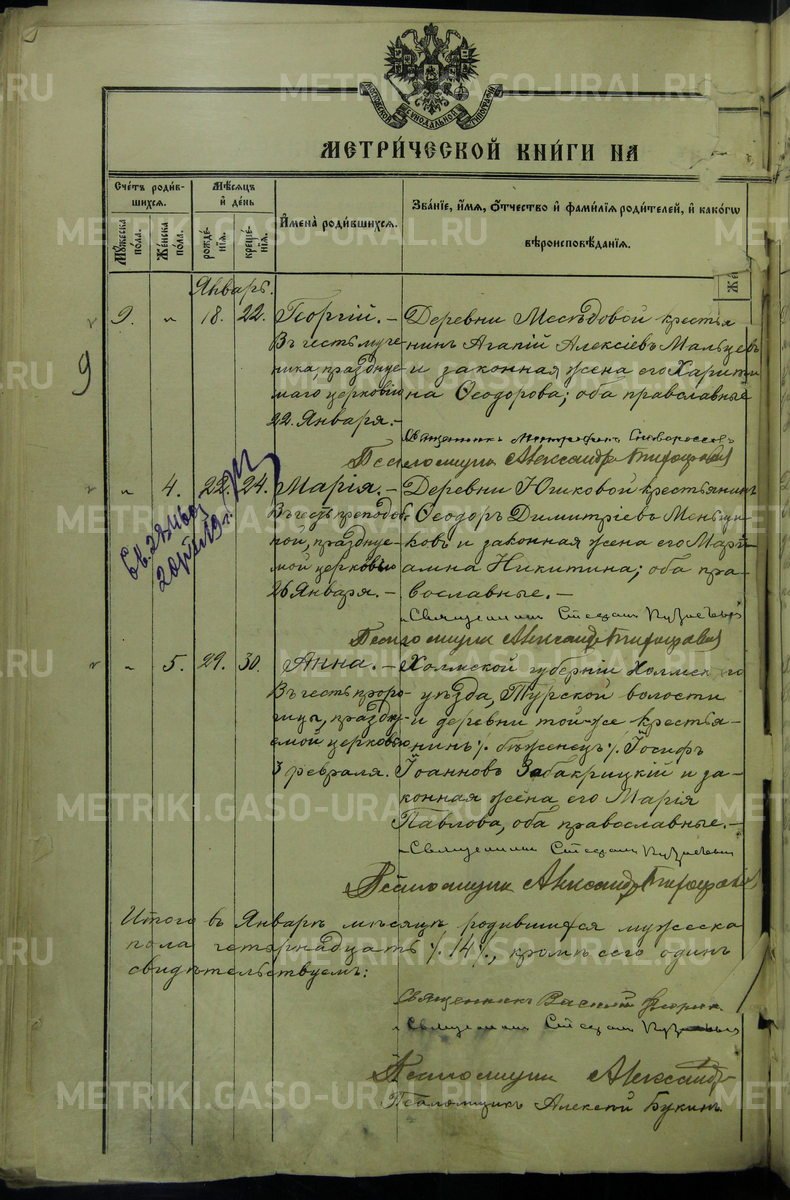 МЕТРИ́ЧЕСКОЙ КНИ́ГИ НА
Сче́тъ роди́вшихся.
Мѣ́сяцъ й де́нь
Му́жеска по́ла.
Же́нска по́ла.
рожде́нїя.
креще́нїя.
И҆мена̀ роди́вшихся.
Зва́нїе, и҆́мя, ѻ҆́тчество и҆ фами́лїя роди́телей, и҆ како́гѡ
вѣроисповѣ́данїя.
Январь.
9. „ 18. 22. Георгій. –
Въ честь муче
ника, праздну
маго церковію
22 Января. –
Деревни крестья
нинъ Агапій Алексіевъ Мальцевъ
и законная жена его Харити
на Ѳеодорова; оба православные
Священникъ Митрофанъ
Псаломщикъ Александръ
9
„ 4. 22. 24. Марія. –
Въ честь преподоб
ной, праздну
мой церковью
26 Января. –
Деревни Юшковой крестьянинъ
Ѳеодоръ Димитріевъ Меньши
ковъ и законная жена его Марі
амна Никитина; оба пра–
вославные. –
Священникъ Стефанъ
Псаломщикъ Александръ
„ 5. 29. 30. Анна. –
Въ честь проро
чицы, праздну
емой церковью
3 февраля.
Холмской губерніи Холмскаго
уѣзда, Турской волости
и деревни той-же крестья–
нинъ /. бѣженецъ /. Іосифъ
Іоанновъ Забакрицкій и за–
конная жена его Марія
Павлова, оба православные. –
Священникъ Стефанъ
Псаломщикъ Александръ
Итого въ Январѣ мѣсяцѣ родившихся мужеска
пола четырнадцать /. 14 /., кромѣ сего одинъ
свидѣтельствуемъ:
Священникъ Василій
Священникъ Стефанъ
Псаломщикъ Александръ
Псаломщикъ Алексѣй Букинъ.
METRIKI.GASO-URAL.RU